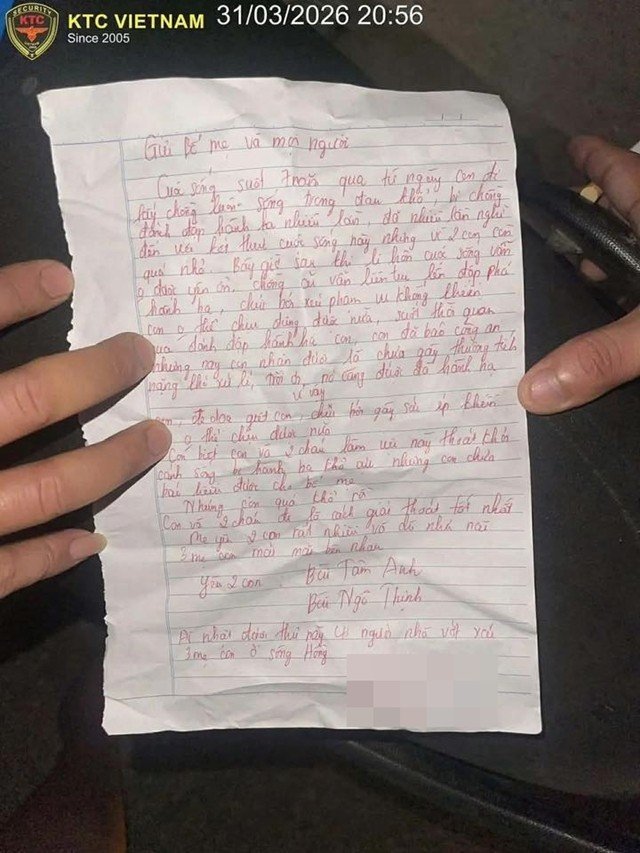 SECURITY
KTC
KTC VIETNAM
Since 2005
31/03/2026 20:56
Gửi Bố mẹ và mọi người
Cuộc sống suốt 7 năm qua từ ngày con đi
lấy chồng luôn sống trong đau khổ, bị chồng
đánh đập hành hạ nhiều lần, đã nhiều lần nghĩ
đến với kết thúc cuộc sống này nhưng vì 2 con còn
quá nhỏ. Bây giờ sau khi li hôn cuộc sống vẫn
o được yên ổn, chồng cũ vẫn liên tục đánh đập phá
hành hạ, chửi bới xúc phạm vu khống khiến
con o thể chịu đựng được nữa, suốt thời gian
qua đánh đập hành hạ con, con đã báo công an
nhưng nay con nhận được là chưa gây thương tích
nặng khó xử lí, trời ơi, nó càng được đà hành hạ
vì vậy
con, đe dọa giết con, chửi bới gây sức ép khiến
o thể chịu được nữa
Con biết con và 2 cháu làm vậy này thoát khỏi
cảnh sống bị hành hạ khổ ải nhưng con chưa
báo hiếu được cho bố mẹ
Nhưng con quá khổ rồi
Con và 2 cháu đi là cách giải thoát tốt nhất
Mẹ yêu 2 con rất nhiều và dù nhà nơi
3 mẹ con mãi mãi bên nhau
Yêu 2 con. Bùi Tâm Anh
Bùi Ngô Thịnh
Ai nhặt được thư này có người nhờ vớt xác
3 mẹ con ở sông Hồng